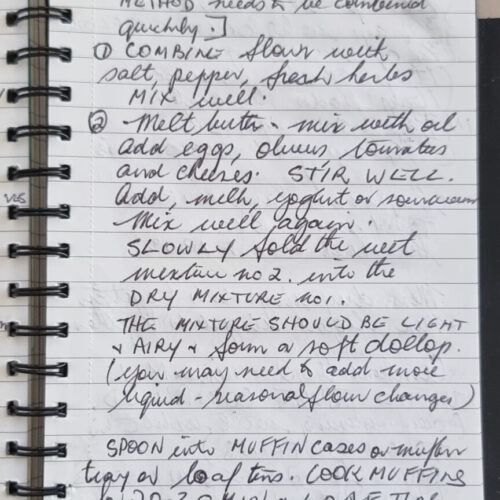 METHOD needs to be combined
quickly.]
① COMBINE flour with
salt, pepper, fresh herbs
MIX well.
② Melt butter - mix with oil
add eggs, olives, tomatoes
and cheeses. STIR WELL.
Add, milk, yoghurt or sourcream
Mix well again.
SLOWLY fold the wet
mixture no 2. into the
DRY MIXTURE no 1.
THE MIXTURE SHOULD BE LIGHT
& AIRY & form a soft dollop.
(you may need to add more
liquid - seasonal flour changes)
SPOON into MUFFIN cases or muffin
tray or loaf tins. COOK MUFFINS